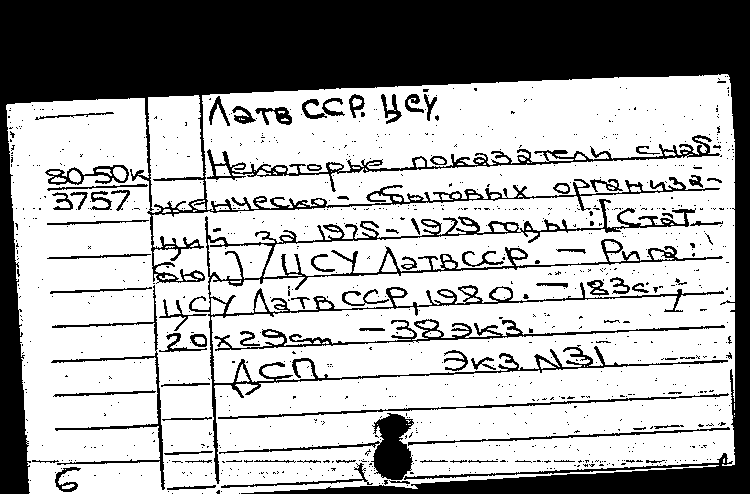 Латв ССР. ЦСУ.
80-50к
3757
Некоторые показатели снаб-
женческо-сбытовых организа-
ций за 1975-1979 годы: [Стат.
бюл.] / ЦСУ Латв ССР. — Рига:
ЦСУ Латв ССР, 1980. — 183с.;
20х29см. — 38 экз.
ДСП. Экз. N31.
6